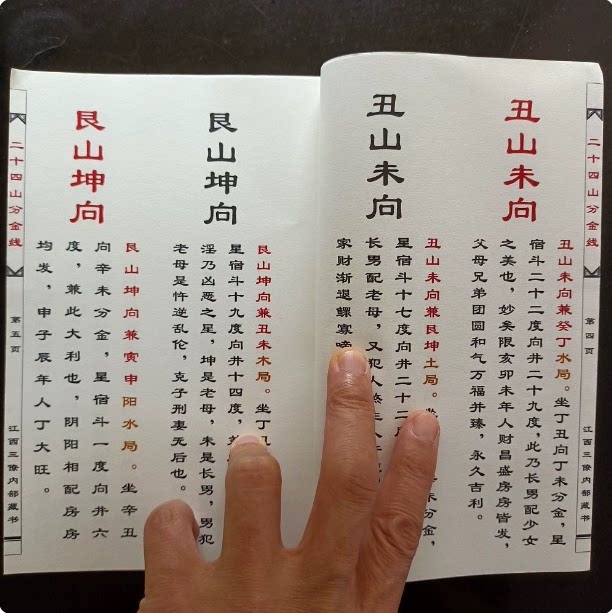 二十四山分金线
第四页
江西三僚内部藏书
丑山未向
丑山未向兼癸丁水局。坐丁丑向丁未分金，星
宿斗二十二度向井二十九度，此乃长男配少女
之美也，妙矣限亥卯未年人财昌盛房房皆发，
父母兄弟团圆和气万福并臻，永久吉利。
丑山未向
丑山未向兼艮坤土局。未分金，
星宿斗十七度向井二十二
长男配老母，又犯人煞年人
家财渐退鳏寡
艮山坤向
艮山坤向兼丑未木局。坐丁
星宿斗十九度向井十四度，
淫乃凶恶之星，坤是老母，未是长男，男犯
老母是忤逆乱伦，克子刑妻无后也。
艮山坤向
艮山坤向兼寅申阳水局。坐辛丑
向辛未分金，星宿斗一度向井六
度，兼此大利也，阴阳相配房房
均发，申子辰年人丁大旺。
二十四山分金线
第五页
江西三僚内部藏书